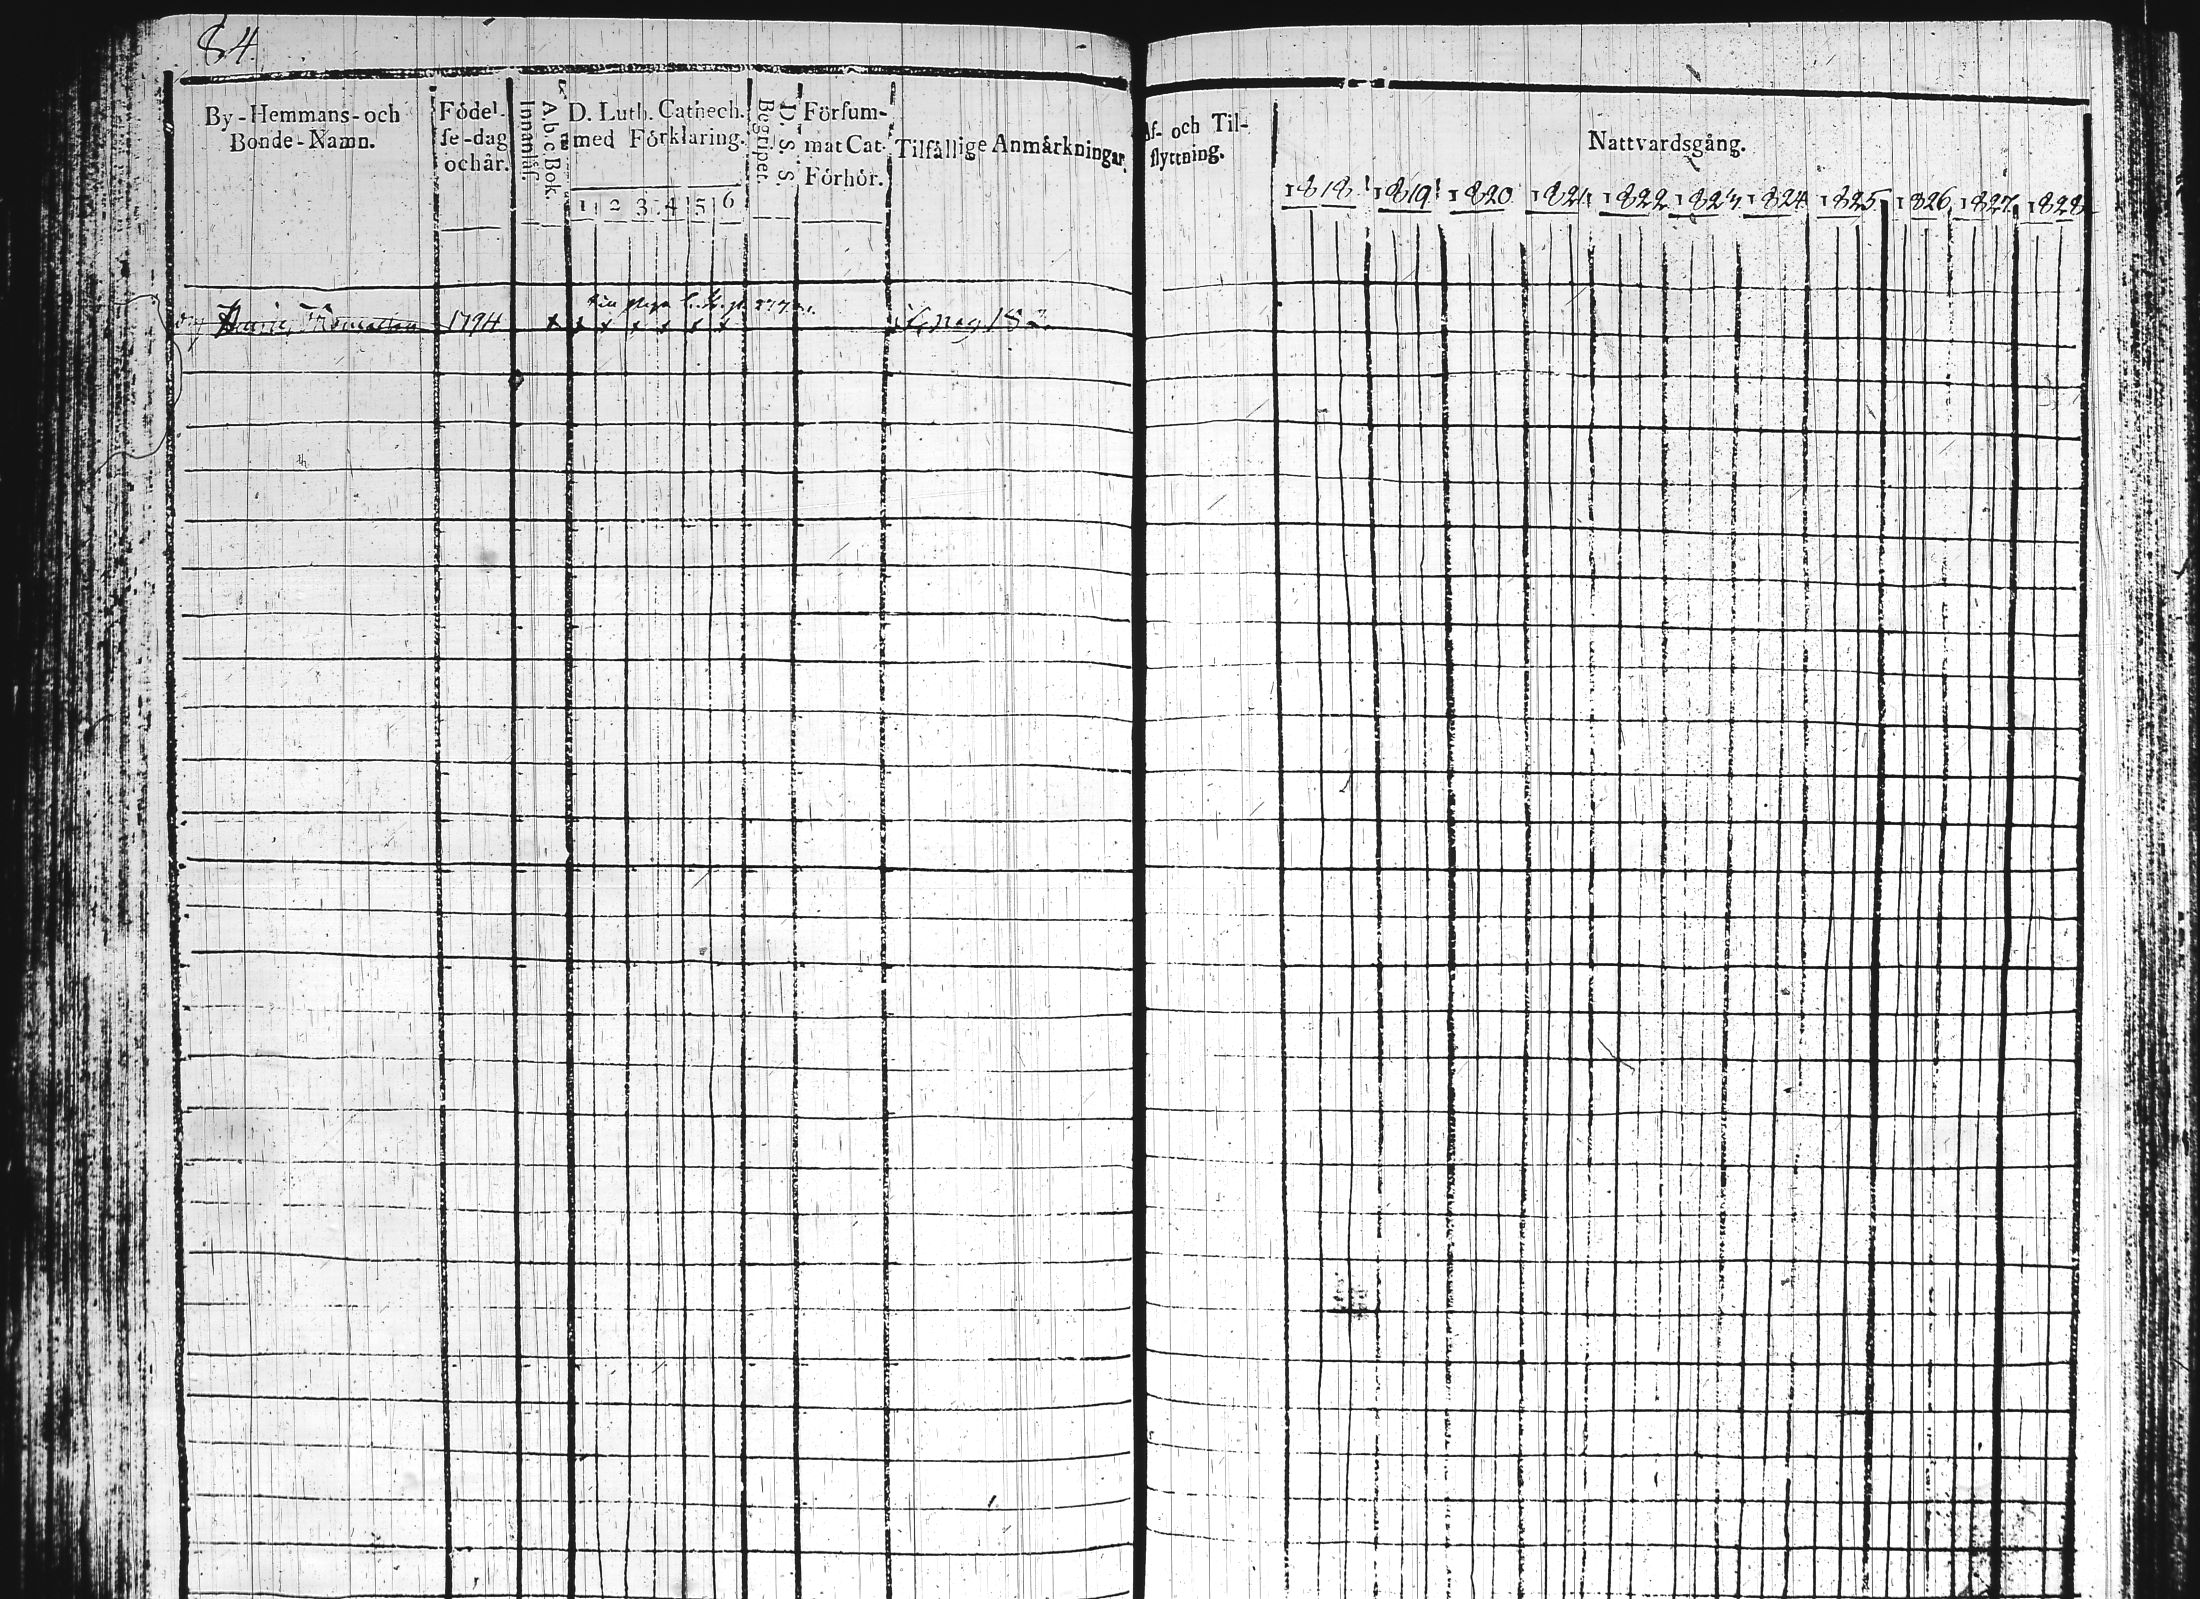 84
By-Hemmans- och
Bonde-Namn.
Födel-
se-dag
och år.
Innanläs.
A b c Bok.
D. Luth. Cathech.
med Förklaring.
1 2 3 4 5 6
Begriper.
D. S. S.
Försum-
mat Cat.
Förhör.
Tilfällige Anmärkningar.
Af- och Til-
flyttning.
Nattvardsgång.
1818 1819 1820 1821 1822 1823 1824 1825 1826 1827 1828
1794 x x x x x x x